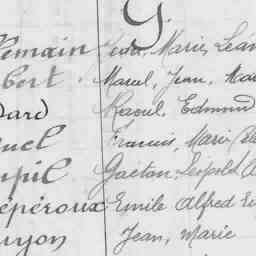 G
Marie, Léan
bert Marcel, Jean,
dard Raoul, Edmond
uel Francis, Marie
upil Gaëtan, Léopold
épéroux Emile Alfred
uyon Jean, Marie